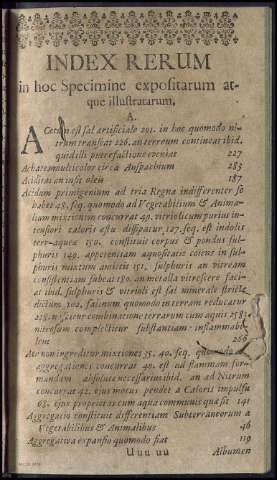 INDEX RERUM
in hoc Specimine expositarum at-
que illustratarum.
A.
ACetum est sal artificiale 201. in hoc quomodo ni-
trum transeat 226. an terreum contineat ibid.
quid illi putrefactione eveniat 227
Achates multicolor circa Anspachium 283
Aciditas an insit oleis 187
Acidum primigenium ad tria Regna indifferenter se
habet 48. seq. quomodo ad Vegetabilium & Anima-
lium mixtionem concurrat 49. vitriolicum purius in-
tensiori caloris æstu dissipatur 127. seq. est indolis
terr-aqueæ 150. constituit corpus & pondus sul-
phuris 149. appetentiam aquositatis coiens in sul-
phuris mixtum amittit 151. sulphuris an vitream
consistentiam subeat 180. an metalla vitrescere faci-
at ibid. sulphuris & vitrioli est sal minerale stricte
dictum 202. salinum quomodo in terram reducatur
218. nescitur combinatione terrarum cum aquis 258.
nitrosum complectitur substantiam inflammabi-
lem 266
Aer non ingreditur mixtiones 35. 40. seq. quomodo ad
aggregationes concurrat 40. est ad flammam for-
mandam absolute necessarius ibid. an ad Nitrum
concurrat 42. ejus motus pendet a Caloris impulsu
68. ejus proprietas cum aqua communis quæ sit 141
Aggregatio constituit differentiam Subterraneorum a
Vegetabilibus & Animalibus 46
Aggregativa expansio quomodo fiat 119
Uuu uu Albumen